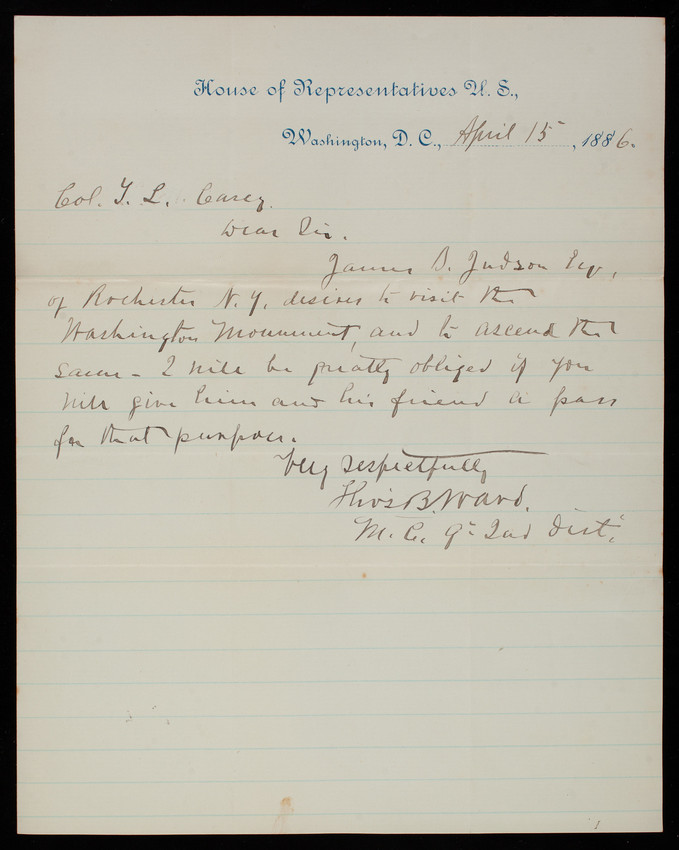 House of Representatives U. S.,
Washington, D. C., April 15, 1886.
Col. T. L. Casey.
Dear Sir.
James B. Judson Esq,
of Rochester N. Y. desires to visit the
Washington Monument, and to ascend the
same - I will be greatly obliged if you
will give him and his friend a pass
for that purpose.
Very respectfully
Thos B. Ward.
M. C. 9" Ind Dist.